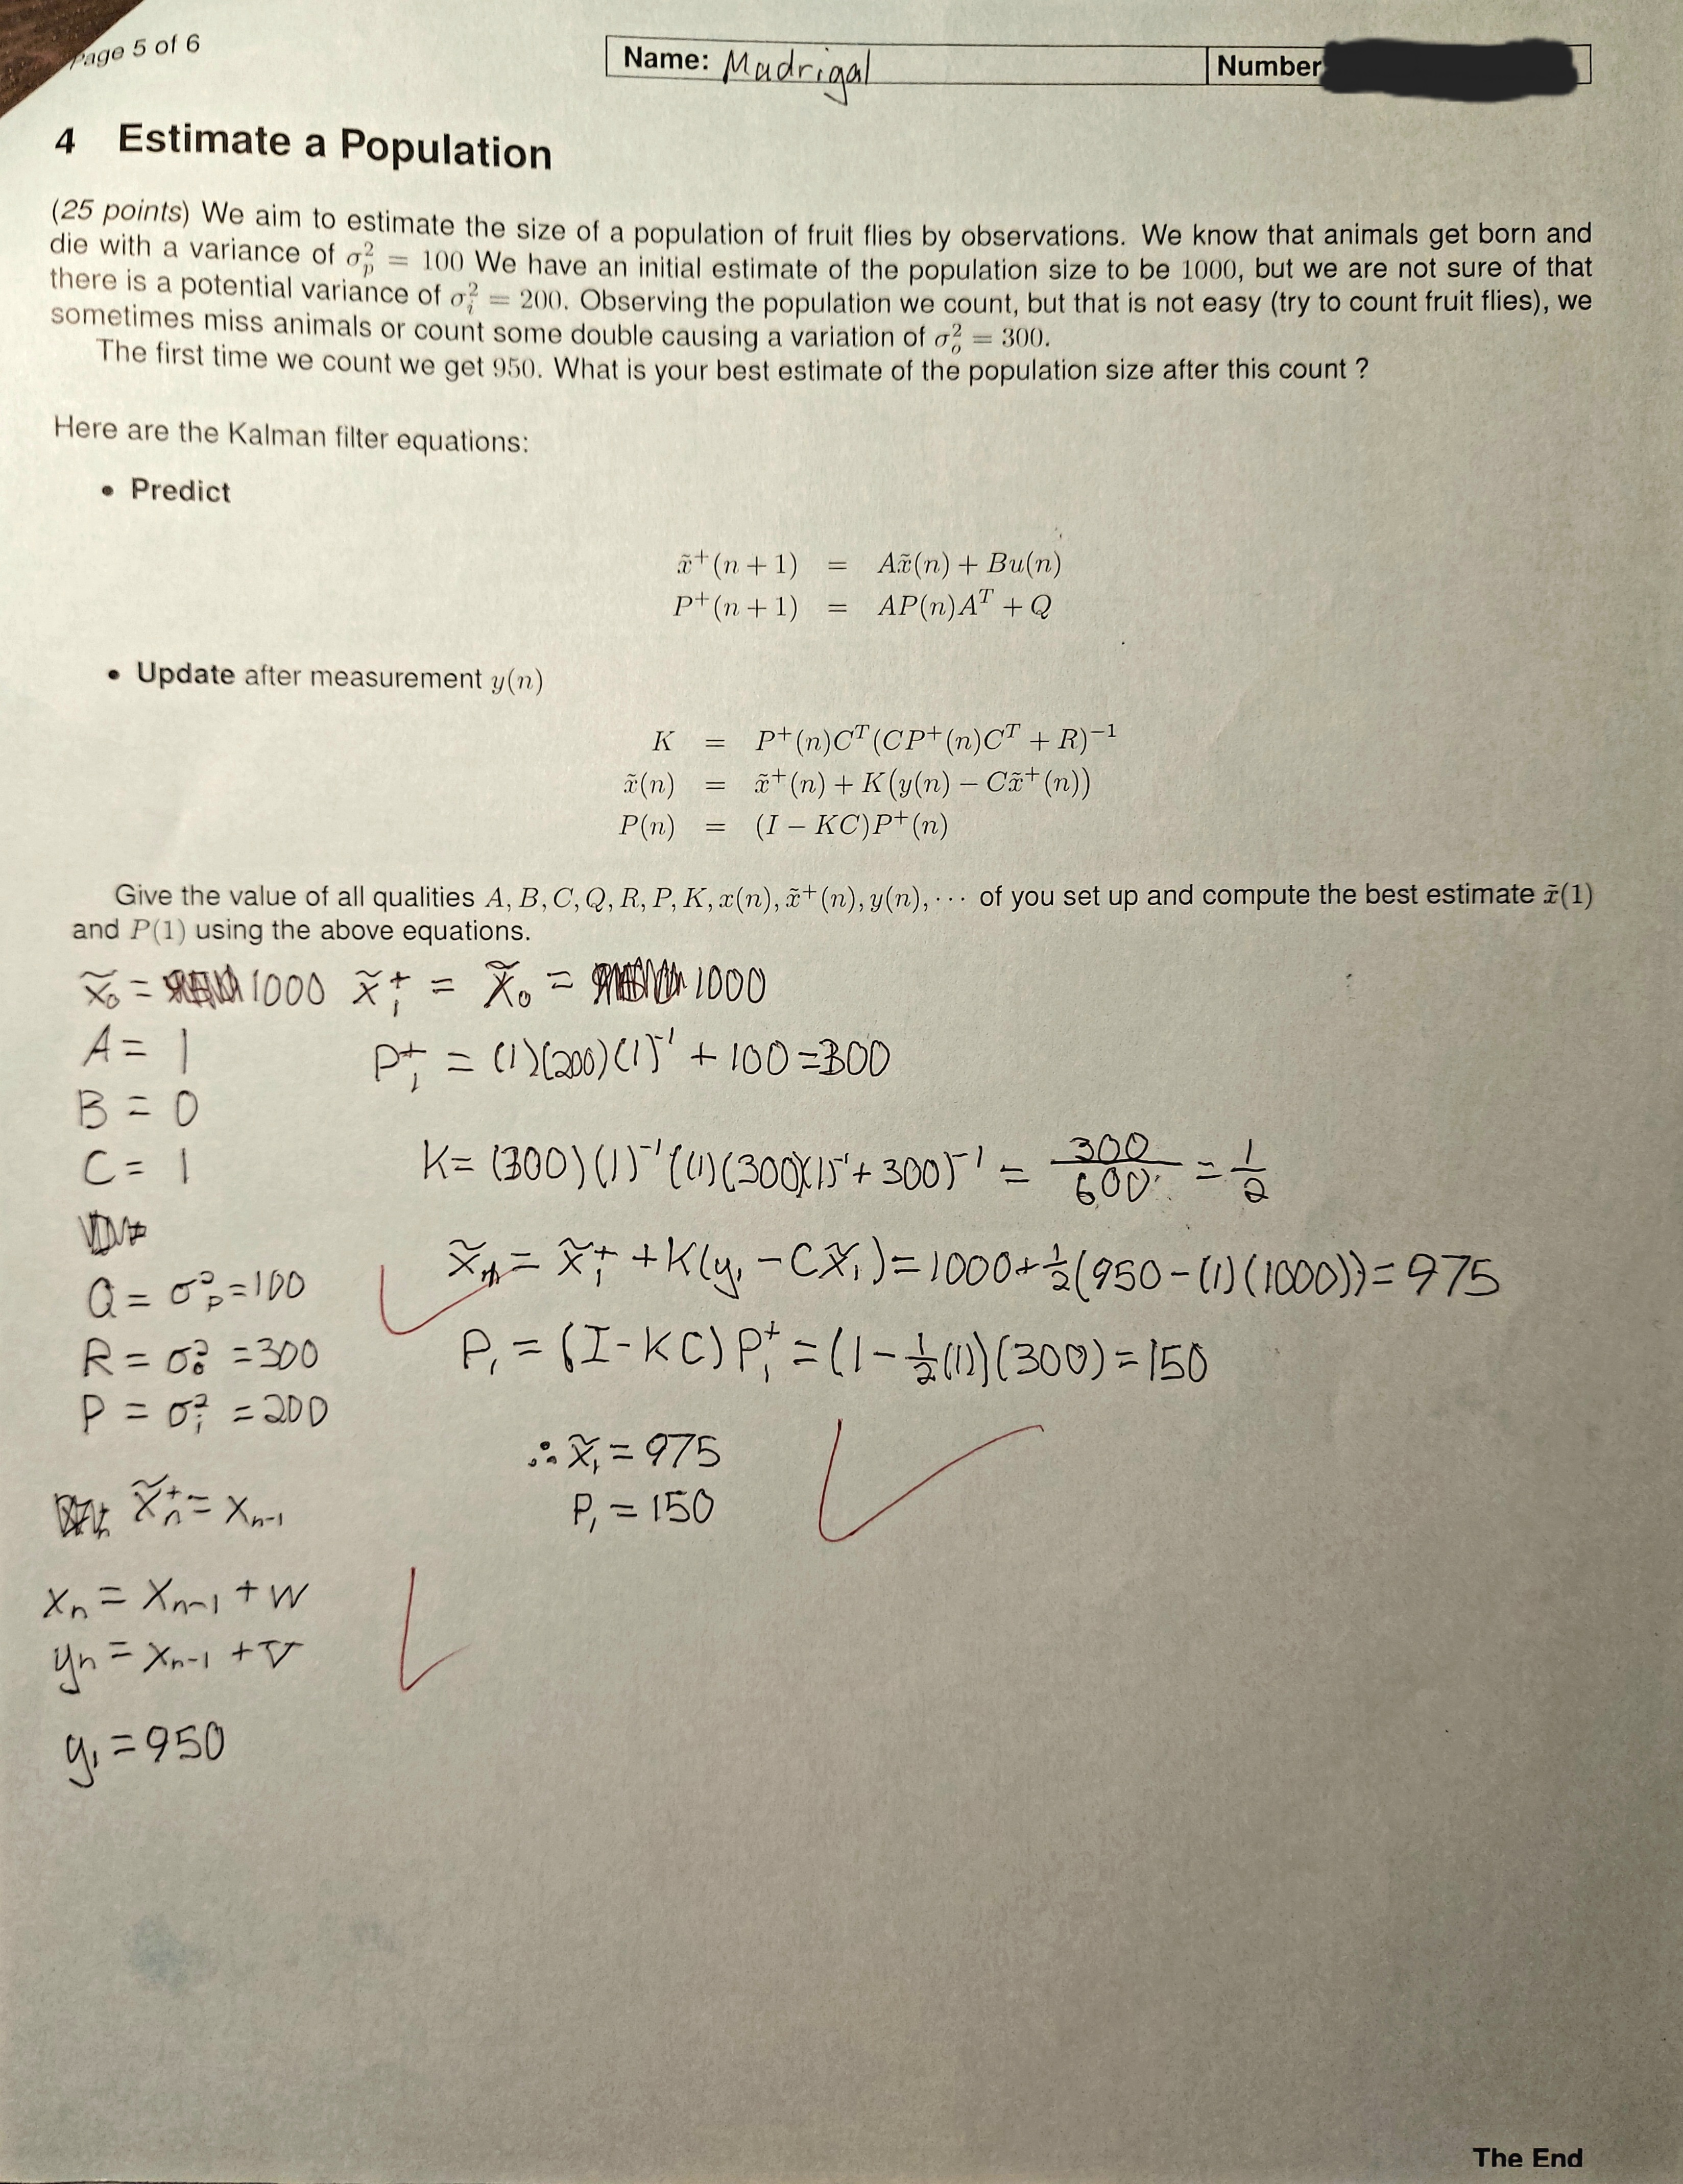 Page 5 of 6
Name: Madrigal Number
4 Estimate a Population
(25 points) We aim to estimate the size of a population of fruit flies by observations. We know that animals get born and
die with a variance of σ_p^2 = 100 We have an initial estimate of the population size to be 1000, but we are not sure of that
there is a potential variance of σ_i^2 = 200. Observing the population we count, but that is not easy (try to count fruit flies), we
sometimes miss animals or count some double causing a variation of σ_o^2 = 300.
The first time we count we get 950. What is your best estimate of the population size after this count ?
Here are the Kalman filter equations:
• Predict
x̃^+(n + 1) = Ax̃(n) + Bu(n)
P^+(n + 1) = AP(n)A^T + Q
• Update after measurement y(n)
K = P^+(n)C^T(CP^+(n)C^T + R)^−1
x̃(n) = x̃^+(n) + K(y(n) − Cx̃^+(n))
P(n) = (I − KC)P^+(n)
Give the value of all qualities A, B, C, Q, R, P, K, x(n), x̃^+(n), y(n), ··· of you set up and compute the best estimate x̃(1)
and P(1) using the above equations.
x̃_0 = 1000 x̃_1^+ = x̃_0 = 1000
A = 1
P_1^+ = (1)(200)(1)^-1 + 100 = 300
B = 0
C = 1
K = (300)(1)^-1((1)(300)(1)^-1 + 300)^-1 = 300/600 = 1/2
Q = σ_p^2 = 100
x̃_1 = x̃_1^+ + K(y_1 - Cx̃_1) = 1000 + 1/2(950 - (1)(1000)) = 975
R = σ_o^2 = 300
P_1 = (I - KC) P_1^+ = (1 - 1/2(1))(300) = 150
P = σ_i^2 = 200
∴ x̃_1 = 975
P_1 = 150
x̃_n^+ = x_n-1
x_n = x_n-1 + w
y_n = x_n-1 + v
y_1 = 950
The End